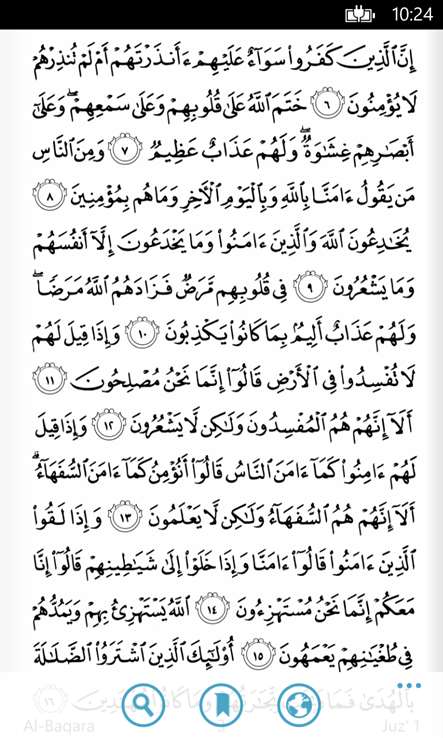 10:24
إِنَّ ٱلَّذِينَ كَفَرُوا۟ سَوَآءٌ عَلَيْهِمْ ءَأَنذَرْتَهُمْ أَمْ لَمْ تُنذِرْهُمْ
لَا يُؤْمِنُونَ ٦ خَتَمَ ٱللَّهُ عَلَىٰ قُلُوبِهِمْ وَعَلَىٰ سَمْعِهِمْ ۖ وَعَلَىٰٓ
أَبْصَٰرِهِمْ غِشَٰوَةٌ ۖ وَلَهُمْ عَذَابٌ عَظِيمٌ ٧ وَمِنَ ٱلنَّاسِ
مَن يَقُولُ ءَامَنَّا بِٱللَّهِ وَبِٱلْيَوْمِ ٱلْءَاخِرِ وَمَا هُم بِمُؤْمِنِينَ ٨
يُخَٰدِعُونَ ٱللَّهَ وَٱلَّذِينَ ءَامَنُوا۟ وَمَا يَخْدَعُونَ إِلَّآ أَنفُسَهُمْ
وَمَا يَشْعُرُونَ ٩ فِى قُلُوبِهِم مَّرَضٌ فَزَادَهُمُ ٱللَّهُ مَرَضًا ۖ
وَلَهُمْ عَذَابٌ أَلِيمٌۢ بِمَا كَانُوا۟ يَكْذِبُونَ ١٠ وَإِذَا قِيلَ لَهُمْ
لَا تُفْسِدُوا۟ فِى ٱلْأَرْضِ قَالُوٓا۟ إِنَّمَا نَحْنُ مُصْلِحُونَ ١١
أَلَآ إِنَّهُمْ هُمُ ٱلْمُفْسِدُونَ وَلَٰكِن لَّا يَشْعُرُونَ ١٢ وَإِذَا قِيلَ
لَهُمْ ءَامِنُوا۟ كَمَآ ءَامَنَ ٱلنَّاسُ قَالُوٓا۟ أَنُؤْمِنُ كَمَآ ءَامَنَ ٱلسُّفَهَآءُ ۗ
أَلَآ إِنَّهُمْ هُمُ ٱلسُّفَهَآءُ وَلَٰكِن لَّا يَعْلَمُونَ ١٣ وَإِذَا لَقُوا۟
ٱلَّذِينَ ءَامَنُوا۟ قَالُوٓا۟ ءَامَنَّا وَإِذَا خَلَوْا۟ إِلَىٰ شَيَٰطِينِهِمْ قَالُوٓا۟ إِنَّا
مَعَكُمْ إِنَّمَا نَحْنُ مُسْتَهْزِءُونَ ١٤ ٱللَّهُ يَسْتَهْزِئُ بِهِمْ وَيَمُدُّهُمْ
فِى طُغْيَٰنِهِمْ يَعْمَهُونَ ١٥ أُو۟لَٰٓئِكَ ٱلَّذِينَ ٱشْتَرَوُا۟ ٱلضَّلَٰلَةَ
بِٱلْهُدَىٰ فَمَا
Al-Baqara
Juz' 1